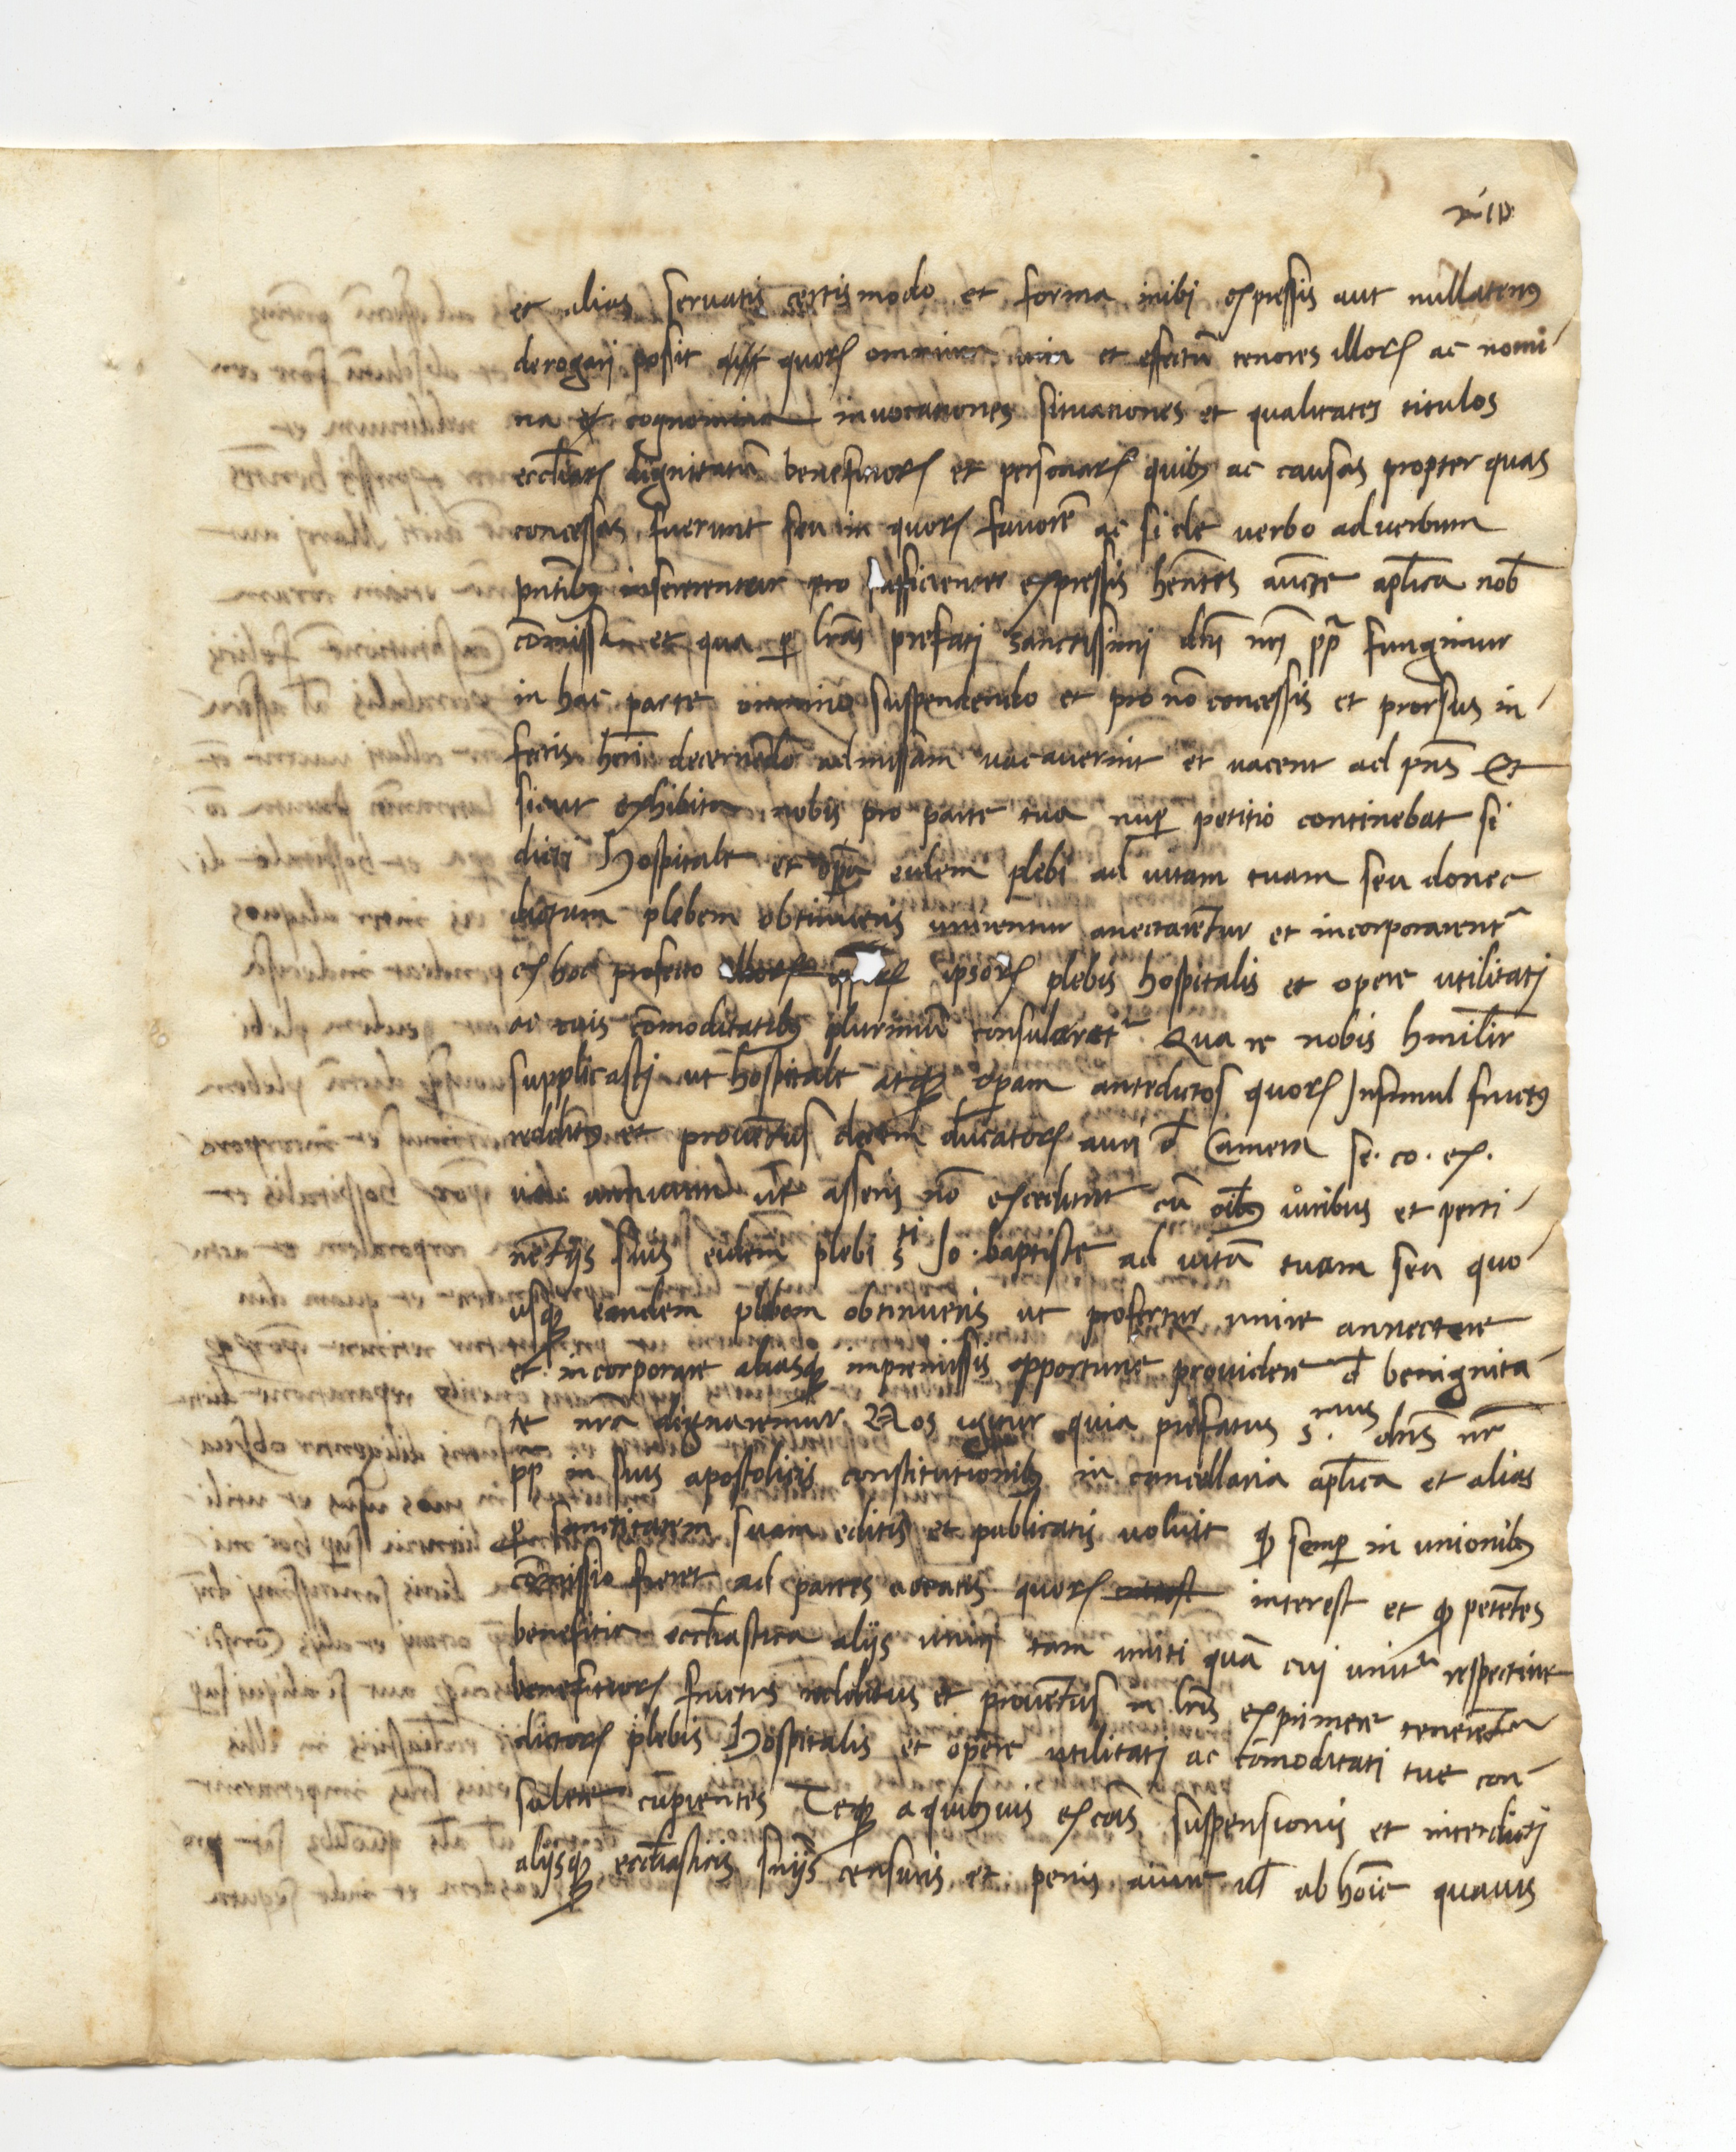 et alias servatis certis modo et forma inibi expressis aut nullatenus
derogari possit quorum omnium vim et effectum tenores illorum ac nomi
na et cognomina invocationes situationes et qualitates titulos
eccliarum dignitatum beneficiorum et personarum quibus ac causas propter quas
concessas fuerunt seu in quorum favore ac si de verbo ad verbum
pntibus insererentur pro sufficienter expressis hentes aucte aplica nob
comissa et qua per lras prefati sanctissimi dni nri pp fungimur
in hac parte omnino suspendendo et pro no concessis et prorsus in
fectis heri decernedo admissam vacaverint et vacent ad pns Et
sicut exhibita nobis pro parte tua nuper petitio continebat si
dicti Hospitale et opa eidem plebi ad vitam tuam seu donec
dictam plebem obtinueris unirentur anectaretur et incorporarentr
ex hoc profecto ipsorum plebis hospitalis et opere utilitati
ac tuis comoditatibus plurimu consuleretr Qua re nobis humilir
supplicasti ut hospitale atque opam antedictos quorum Insimul fructus
redditus et proventus decem ducatorum auri d Camera se. co. ex.
val. annuatim ut asseris no excedunt cu oibus iuribus et perti
netijs suis eidem plebi sti Jo. baptiste ad vita tuam seu quo
usque eandem plebem obtinueris ut prefertur unire annectere
et incorporare aliasque in premissis opportune providere d benignita
te nra dignaremur. Nos igitur quia prefatus s.mus dns nr
pp in suis apostolicis constitutionibus in cancellaria aplica et alias
per sanctitatem suam editis et publicatis voluit quod semper in unionibus
comissio fieret ad partes vocatis quorum interest et quod petetes
beneficia eccliastica alijs uniri tam uniti qua cui unitr respective
beneficiorum fructus redditus et proventus in lris exprimere teneretr
dictorum plebis Hospitalis et opere utilitati ac comoditati tue con
sulere cupientes Teque a quibusvis excois suspensionis et interdicti
alijsque eccliasticis sniis censuris et penis a iure vl ab hoie quavis